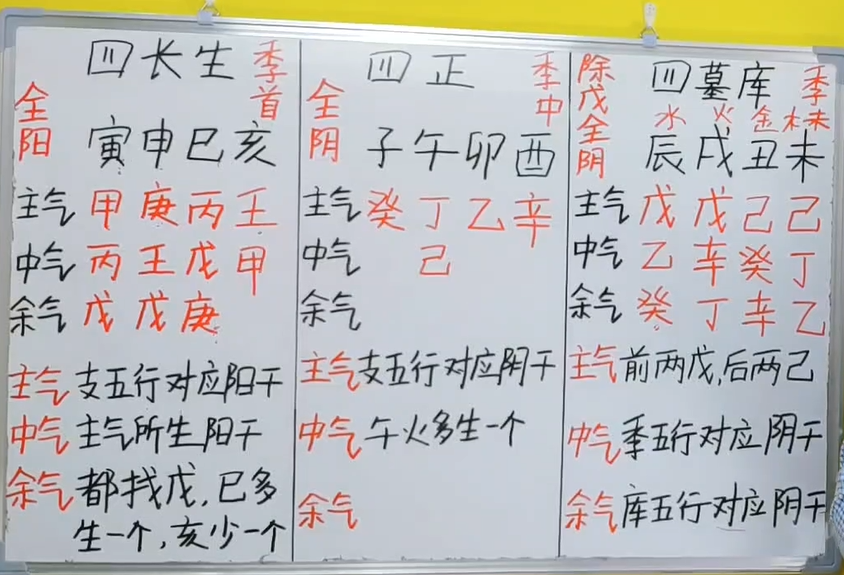 四长生 季首
全阳
寅申巳亥
主气 甲庚丙壬
中气 丙壬戊甲
余气 戊戊庚
主气 支五行对应阳干
中气 主气所生阳干
余气 都找戊,巳多
生一个,亥少一个
四正 季中
全阴
子午卯酉
主气 癸丁乙辛
中气 己
余气
主气 支五行对应阴干
中气 午火多生一个
余气
除戊全阴 四墓库 季末
水火金木
辰戌丑未
主气 戊戊己己
中气 乙辛癸丁
余气 癸丁辛乙
主气 前两戊,后两己
中气 季五行对应阴干
余气 库五行对应阴干